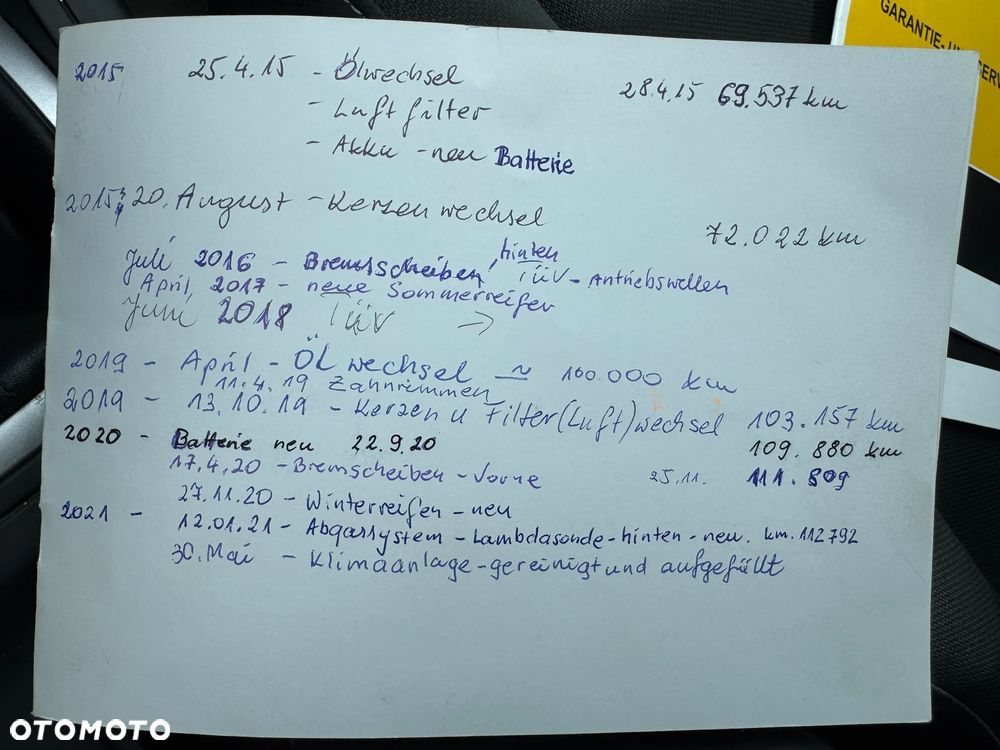 GARANTIE-U
SERV
2015 25.4.15 - Ölwechsel 28.4.15 69.537 km
- Luftfilter
- Akku - neu Batterie
2015 20. August - Kerzenwechsel 72.022 km
Juli 2016 - Bremsscheiben, hinten TÜV - Antriebswellen
April 2017 - neue Sommerreifen
Juni 2018 TÜV →
2019 - April - ÖL wechsel ≈ 100.000 km
11.4.19 Zahnriemmen
2019 - 13.10.19 - Kerzen u Filter (Luft) wechsel 103.157 km
2020 - Batterie neu 22.9.20 109.880 km
17.4.20 - Bremscheiben - Vorne 25.11. 111.809
27.11.20 - Winterreifen - neu
2021 - 12.01.21 - Abgassystem - Lambdasonde - hinten - neu. km. 112792
30. Mai - Klimaanlage - gereinigt und aufgefällt
OTOMOTO